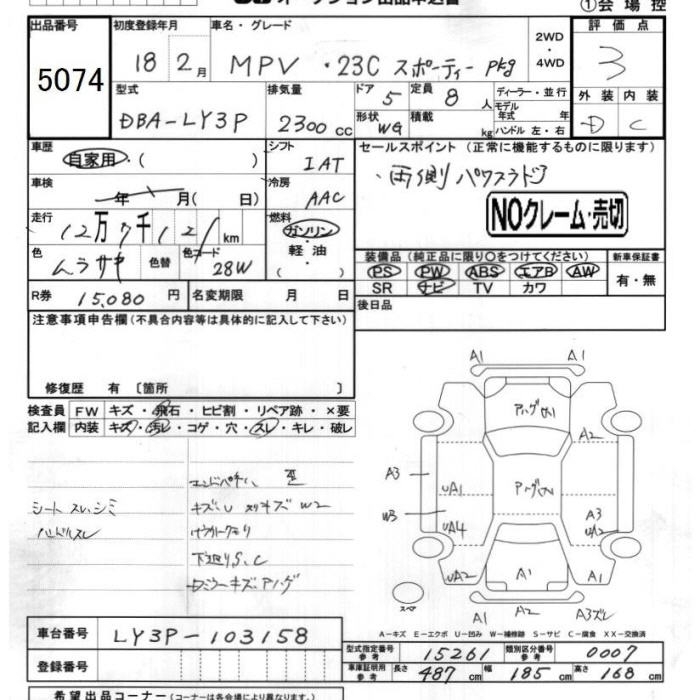 オークション出品申込書
①会場控
出品番号
5074
初度登録年月
18 2月
車名・グレード
MPV ・23C スポーティー pkg
2WD
・
4WD
評価点
3
型式
DBA-LY3P
排気量
2300cc
ドア
5
定員
8人
形状
WG
積載
kg
ディーラー・並行
モデル
年式 年
ハンドル 左・右
外装 内装
D C
車歴
自家用・( )
シフト
IAT
車検
年 月( 日)
冷房
AAC
セールスポイント (正常に機能するものに限ります)
・両側パワスラドア
NOクレーム・売切
走行
12万7千121km
燃料
ガソリン・
軽油・
( )
色
色替
色コード
28W
装備品 (純正品に限り○をつけてください)
PS PW ABS エアB AW
SR ナビ TV カワ
新車保証書
有・無
R券 15,080 円
名変期限 月 日
後日品
注意事項申告欄 (不具合内容等は具体的に記入して下さい)
修復歴 有 〔箇所 〕
検査員
記入欄
FW キズ・飛石・ヒビ割・リペア跡・×要
内装 キズ・汚レ・コゲ・穴・スレ・キレ・破レ
シートスレ、シミ
ハンドルスレ
キズ、U W2
下廻りS、C
A1 A1
A2
A3
UA1
W3
UA4
A3
UA2
UA2
A1
A1
A1
A2
A3スレ
スペア
A－キズ E－エクボ U－凹み W－補修跡 S－サビ C－腐食 XX－交換済
車台番号 LY3P-103158
登録番号
型式指定番号
参考
15261
類別区分番号
参考
0007
車庫証明用
参考
長さ 487cm 幅 185cm 高さ 168cm
希望出品コーナー (コーナーは各会場により異なります)